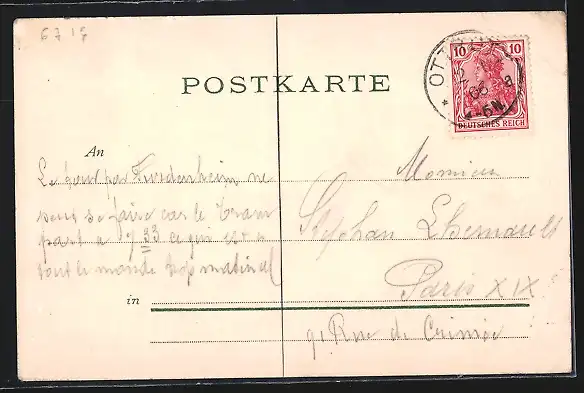 67 17
POSTKARTE
10 10
DEUTSCHES REICH
OTT
An
Le pour par Furdenheim ne
peut se faire car le tram
part à 7 33 ce qui est à
tout le monde trop matinal
Monsieur
Stephan Lhernault
in
Paris XIX
91 Rue de Crimée